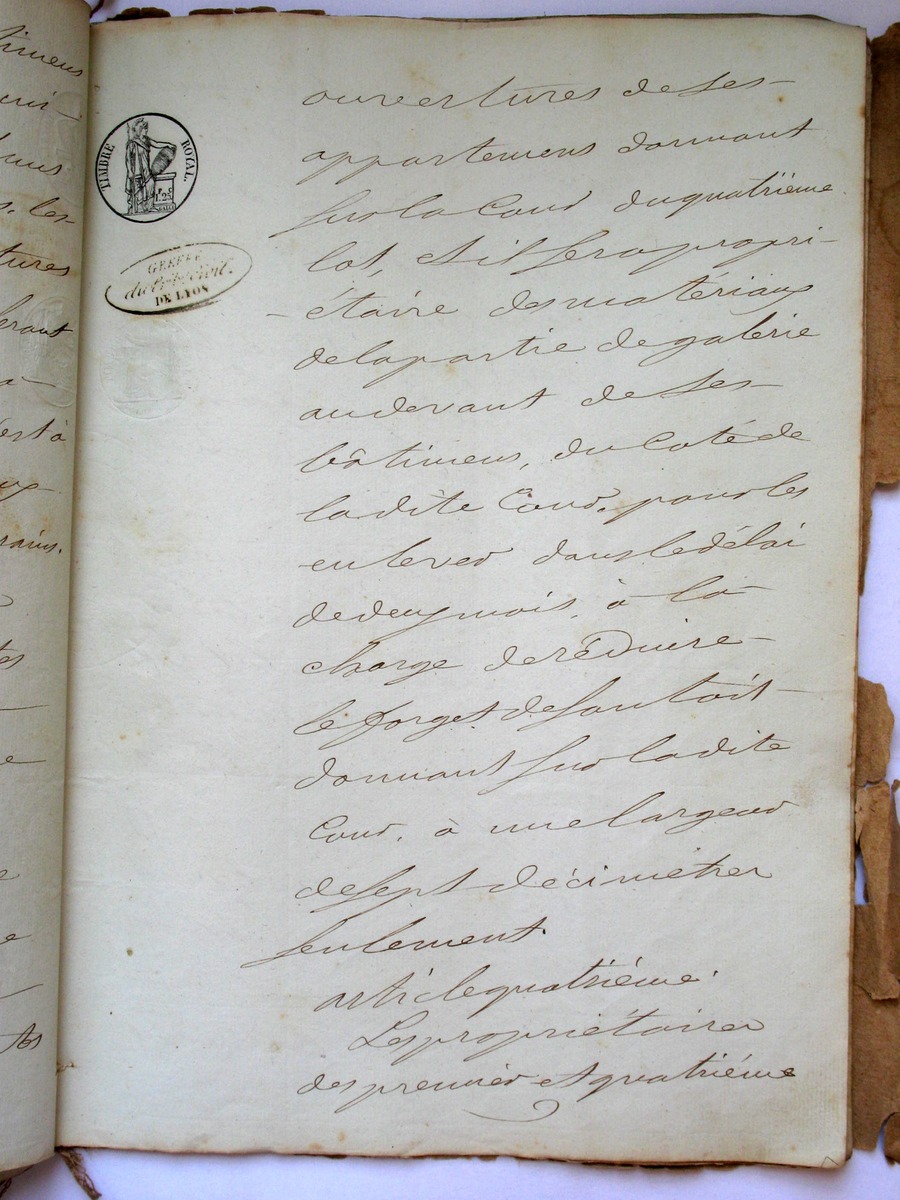 TIMBRE ROYAL.
1F. 25C
GREFFE
du tribal civil.
DE LYON
ouvertures de ses
appartemens donnant
sur la Cour du quatrième
lot, et il sera propri-
-étaire des matériaux
de la partie de galerie
au devant de ses
bâtimens, du coté de
la dite Cour, pour les
enlever dans le délai
de deux mois, à la
charge de réduire
le forget de son toit
donnant sur la dite
Cour, à une largeur
de sept décimètres
seulement.
article quatrième.
Les propriétaires
des premier et quatrième
timens
tures